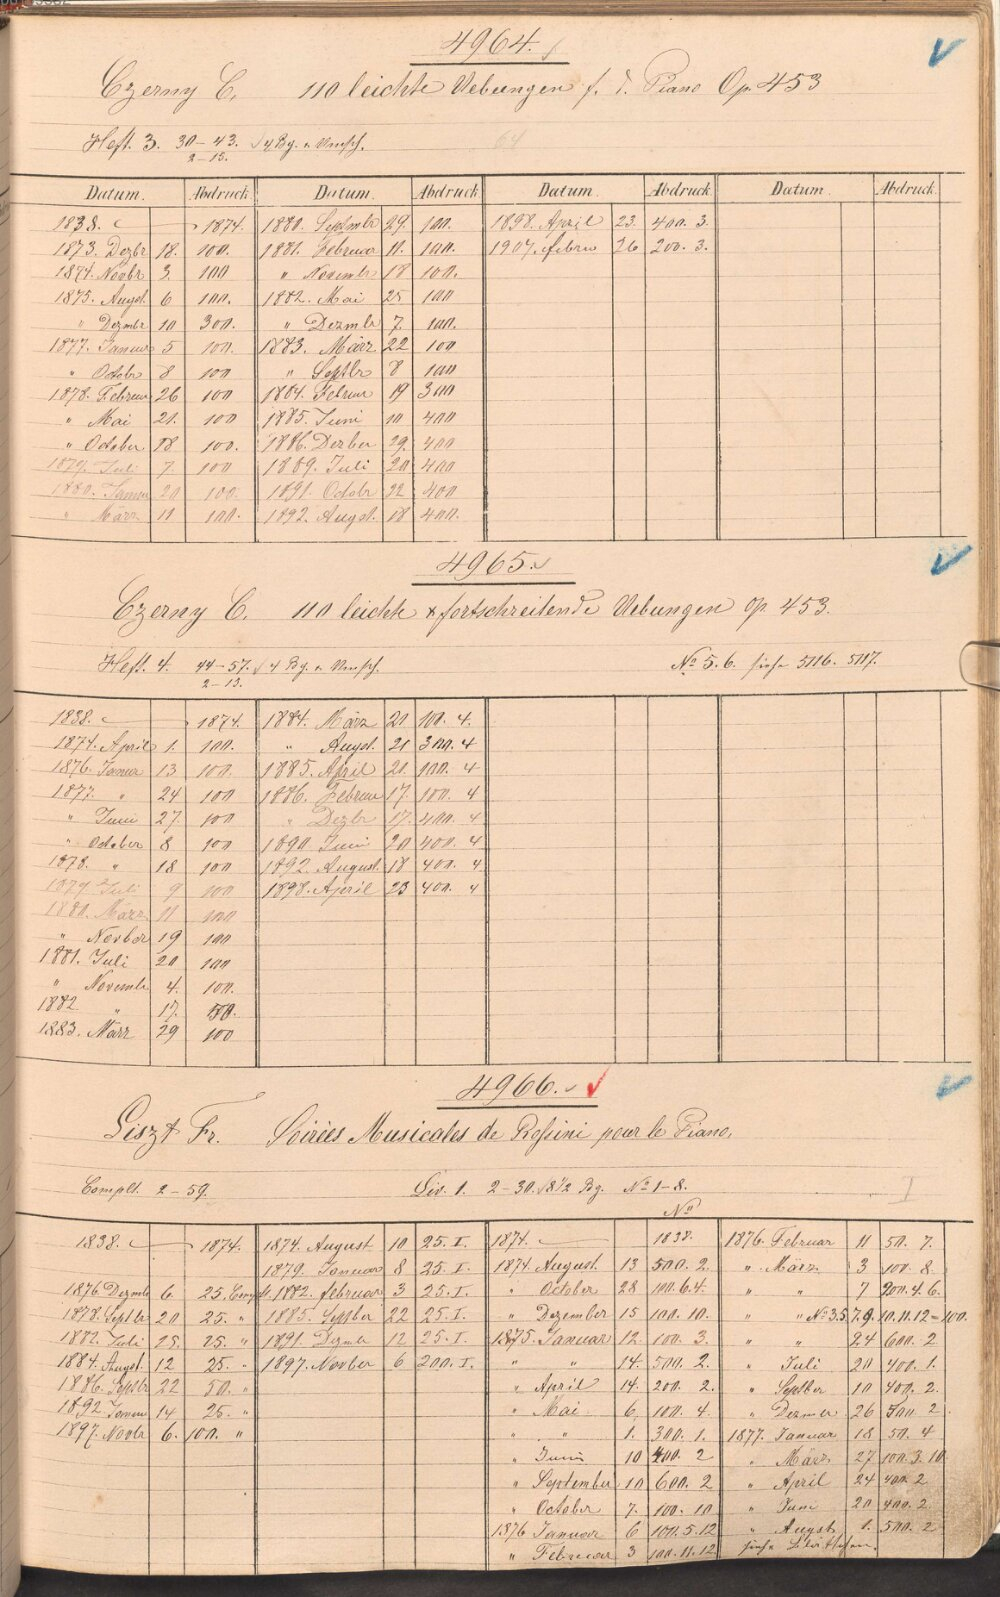 4964.
Czerny C. 110 leichte Uebungen f. d. Piano Op. 453
Heft 3. 30-43. 4 Bg. u. Umsch. 64
2-15.
Datum. Abdruck Datum. Abdruck Datum. Abdruck Datum. Abdruck
1838. 1874. 1880. Septmbr 29 100. 1898. April 23. 400. 3.
1873. Dezbr 18. 100. 1881. Februar 11. 100. 1907. Febru 26 200. 3.
1874. Novbr 3. 100 " Novembr 18 100.
1875. Augst. 6 100. 1882. Mai 25 100
" Dezmbr 10 300. " Dezmbr 7. 100.
1877. Januar 5 100. 1883. März 22 100
" Octobr 8 100 " Septbr 8 100
1878. Februar 26 100 1884. Februar 19 300
" Mai 21. 100 1885. Juni 10 400
" October 18 100. 1886. Dezber 29. 400
1879. Juli 7. 100 1889. Juli 20 400
1880. Januar 20 100. 1891. Octobr 22 400
" März 11 100. 1892. Augst. 18 400.
4965.
Czerny C. 110 leichte & fortschreitende Uebungen op. 453.
Heft. 4. 44-57. 4 Bg. u. Umsch. No. 5. 6. siehe 5116. 5117.
2-13.
1838. 1874. 1884. März 21 100. 4.
1874. April 1. 100. " Augst. 21 300. 4
1876. Januar 13 100. 1885. April 21. 100. 4
1877. " 24 100 1886. Februar 17. 100. 4
" Juni 27. 100 " Dezbr 17. 400. 4
" October 8 100 1890. Juni 20 400. 4
1878. " 18 100 1892. August. 18 400. 4
1879. Juli 9 100 1898. April 23 400. 4
1880. März 11 100
" Novber 19 100
1881. Juli 20 100
" Novembr 4. 100.
1882. " 17. 50.
1883. März 29 100
4966.
Liszt Fr. Soirées Musicales de Rossini pour le Piano.
Complt. 2-59. Liv. 1. 2-30. 8 1/2 Bg. No 1-8. I
No
1838. 1874. 1874. August 10 25. I. 1874. 1838. 1876. Februar 11 50. 7.
1879. Januar 8 25. I. 1874. August 13 500. 2. " März 3 100. 8.
1876 Dezmbr 6. 25. 1882. Februar 3 25. I. " October 28 100. 6. 4. " " 7 200. 4. 6.
1878. Septbr 20 25. " 1885. Septber 22 25. I. " Dezember 15 100. 10. " " No 3.5.7.9. 10.11.12=100.
1882. Juli 25. 25. " 1891. Dezmbr 12 25. I. 1875. Januar 12. 100. 3. " " 24 600. 2
1884. Augst. 12 25. " 1897. Novber 6 200. I. " " 14. 500. 2. " Juli 20 400. 1.
1886. Septbr 22 50. " " April 14. 200. 2. " Septber 10 400. 2.
1892. Januar 14 25. " " Mai 6. 100. 4. " Dezmber 26 500. 2
1897. Novbr 6. 100. " " " 1. 300. 1. 1877. Januar 18 50. 4
" Juni 10 400. 2 " März 27 100. 3. 10
" September 10 600. 2 " April 24 400. 2
" October 7. 100. 10 " Juni 20 400. 2.
1876 Januar 6 100. 5. 12 " Augst. 1. 500. 2
" Februar 3 100. 11. 12 siehe